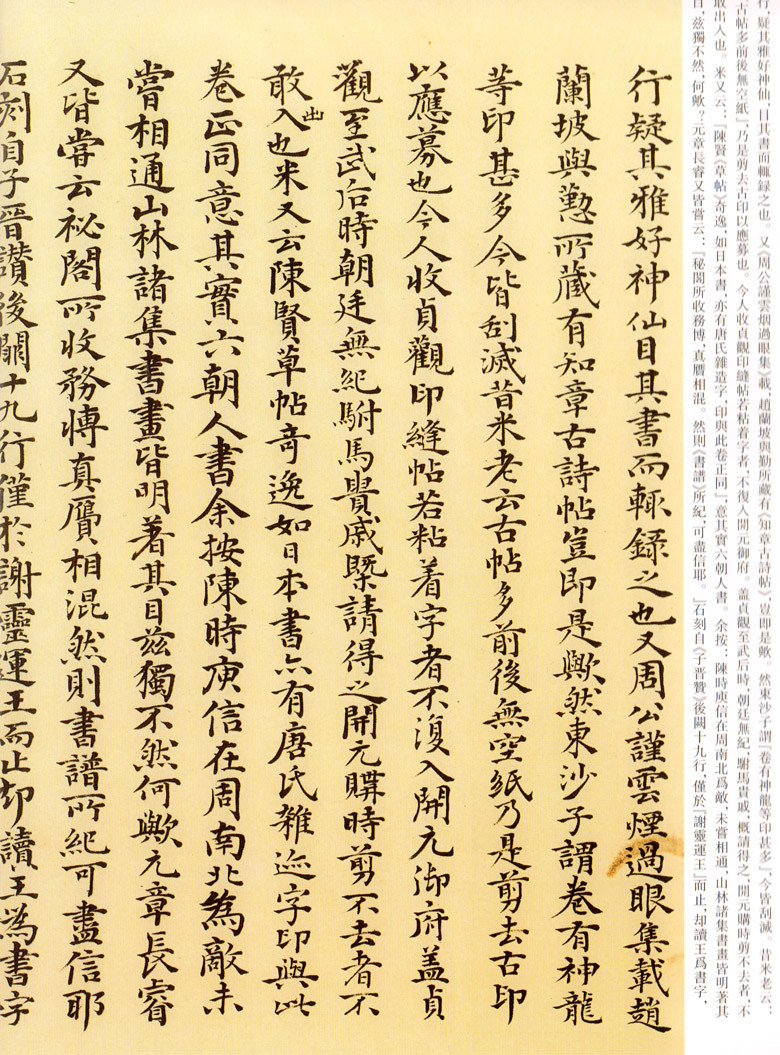 行，疑其雅好神仙，目其書而輒錄之也。又《周公謹雲烟過眼集》載，趙蘭坡與勤所藏有《知章古詩帖》，豈即是歟。然東沙子謂『卷有神龍等印甚多』，今皆刮滅。昔米老云：
『古帖多前後無空紙』，乃是剪去古印以應募也。今人收貞觀印縫帖若粘着字者，不復入開元御府。蓋貞觀至武后時，朝廷無紀，駙馬貴戚，概請得之，開元購時剪不去者，不
敢出人也。米又云：『陳賢《草帖》奇逸，如日本書，亦有唐氏雜造字，印與此卷正同』，意其實六朝人書。余按：陳時庾信在周南北爲敵，未嘗相通，山林諸集書畫皆明著其
目，兹獨不然，何歟？元章長睿又皆嘗云：『秘閣所收務博，真贋相混。然則《書譜》所紀，可盡信耶。』石刻自《子晋贊》後闕十九行，僅於『謝靈運王』而止，却讀王爲書字，
行疑其雅好神仙目其書而輒録之也又周公謹雲煙過眼集載趙
蘭坡與懃所藏有知章古詩帖豈即是歟然東沙子謂卷有神龍
等印甚多今皆刮滅昔米老云古帖多前後無空紙乃是剪去古印
以應募也今人收貞觀印縫帖若粘着字者不復入開元御府盖貞
觀至武后時朝廷無紀駙馬貴戚槩請得之開元購時剪不去者不
敢出入也米又云陳賢草帖奇逸如日本書亦有唐氏雜迹字印與此
卷正同意其實六朝人書余按陳時庾信在周南北為敵未
嘗相通山林諸集書畫皆明著其目兹獨不然何歟元章長睿
又皆嘗云祕閣所收務博真贋相混然則書譜所紀可盡信耶
石刻自子晉讚後闕十九行僅於謝靈運王而止却讀王為書字